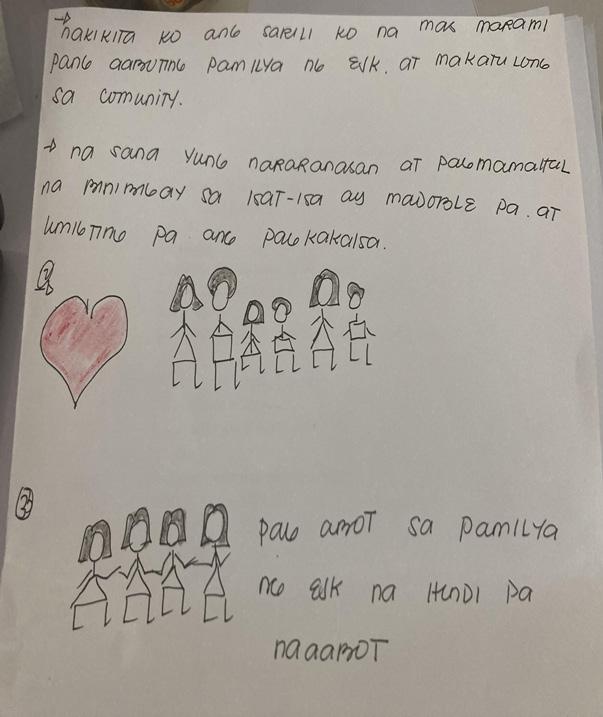 → nakikita ko ang sarili ko na mas marami
pang aabuting pamilya ng EJK. at makatulong
sa comunity.
→ na sana yung nararanasan at pagmamahal
na binibigay sa isat-isa ay madoble pa. at
umigting pa ang pagkakaisa.
pag abot sa pamilya
ng EJK na hindi pa
naaabot